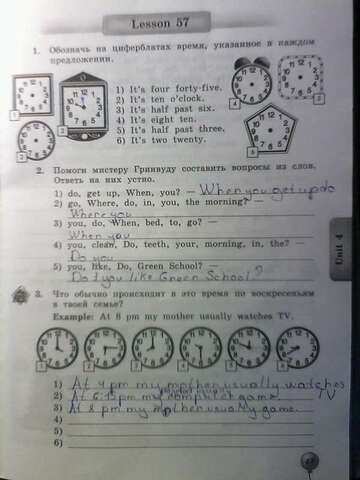 Lesson 57
1. Обозначь на циферблатах время, указанное в каждом
предложении.
1) It's four forty-five.
2) It's ten o'clock.
3) It's half past six.
4) It's eight ten.
5) It's half past three.
6) It's two twenty.
2. Помоги мистеру Гринвуду составить вопросы из слов.
Ответь на них устно.
1) do, get up, When, you? – When you get up do
2) go, Where, do, in, you, the morning? –
Where you
3) you, do, When, bed, to, go? –
When you
4) you, clean, Do, teeth, your, morning, in, the? –
Do you
5) you, like, Do, Green School? –
Do you like Green School?
Unit 4
3. Что обычно происходит в это время по воскресеньям
в твоей семье?
Example: At 8 pm my mother usually watches TV.
1) At 4 pm my mother usually watches
TV
2) At 6:15 pm my computer game.
3) At 8 pm my mother usually game.
4)
5)
6)